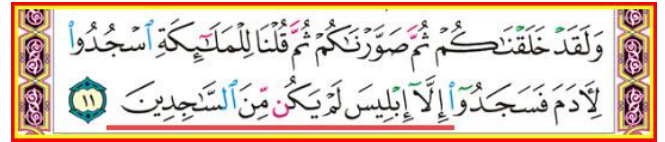 وَلَقَدْ خَلَقْنَٰكُمْ ثُمَّ صَوَّرْنَٰكُمْ ثُمَّ قُلْنَا لِلْمَلَٰٓئِكَةِ ٱسْجُدُوا۟
لِـَٔادَمَ فَسَجَدُوٓا۟ إِلَّآ إِبْلِيسَ لَمْ يَكُن مِّنَ ٱلسَّٰجِدِينَ ١١